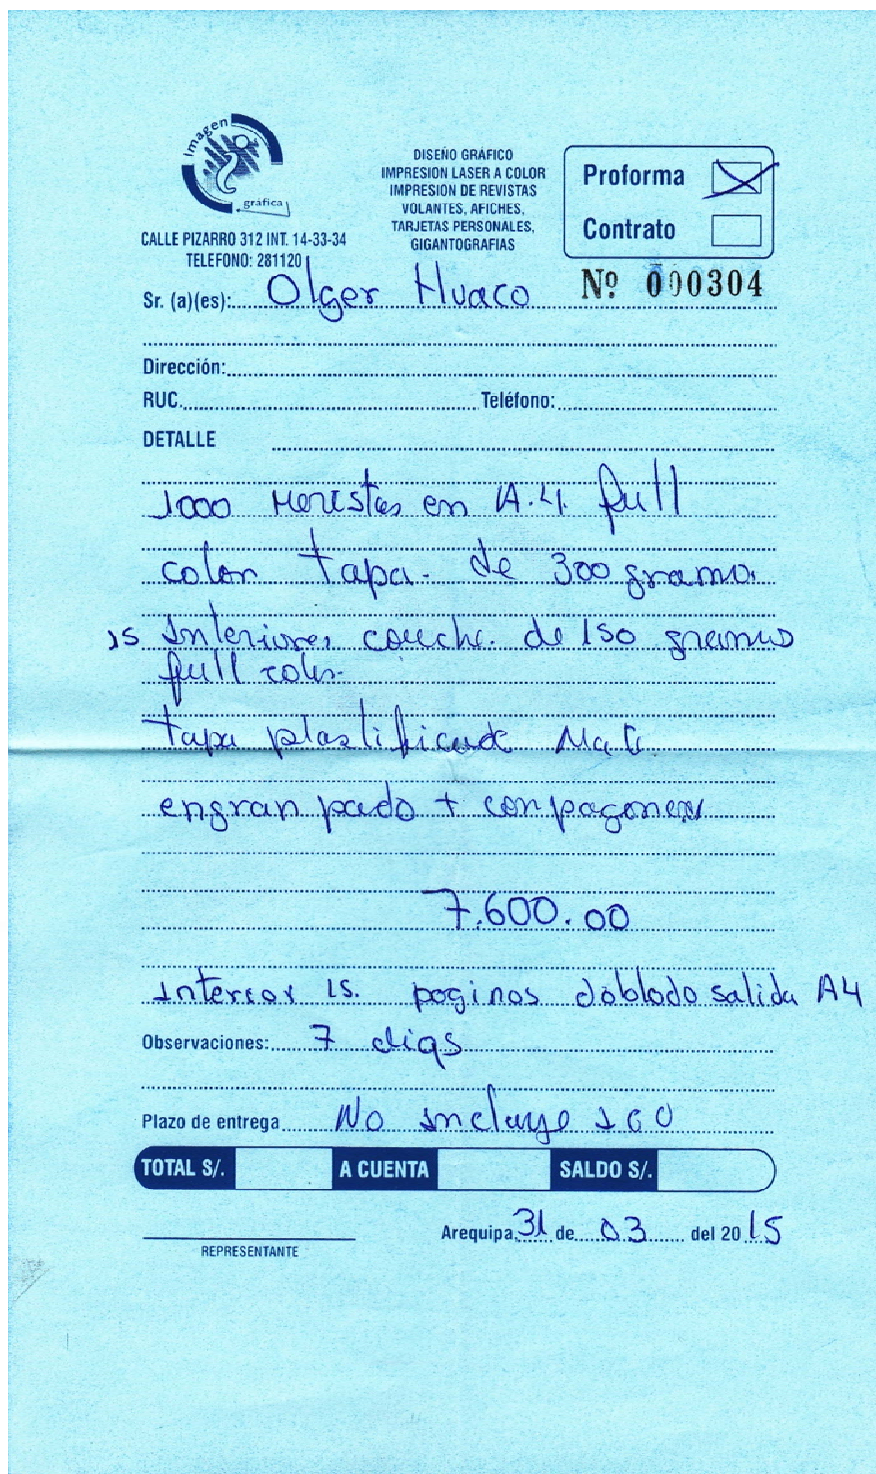 Imagen
gráfica
CALLE PIZARRO 312 INT. 14-33-34
TELEFONO: 281120
DISEÑO GRÁFICO
IMPRESION LASER A COLOR
IMPRESION DE REVISTAS
VOLANTES, AFICHES,
TARJETAS PERSONALES,
GIGANTOGRAFIAS
Proforma
Contrato
Nº 000304
Sr. (a)(es): Olger Huaco
Dirección:
RUC. Teléfono:
DETALLE
1000 Revistas en A.4. full
color tapa. de 300 gramos
15 Interiores couche. de 150 gramos
full color
tapa plastificado Mate
engranpado +
7.600.00
Interior 15. paginas doblado salida A4
Observaciones: 7 dias
Plazo de entrega No incluye IGV
TOTAL S/. A CUENTA SALDO S/.
Arequipa, 31 de 03 del 2015
REPRESENTANTE